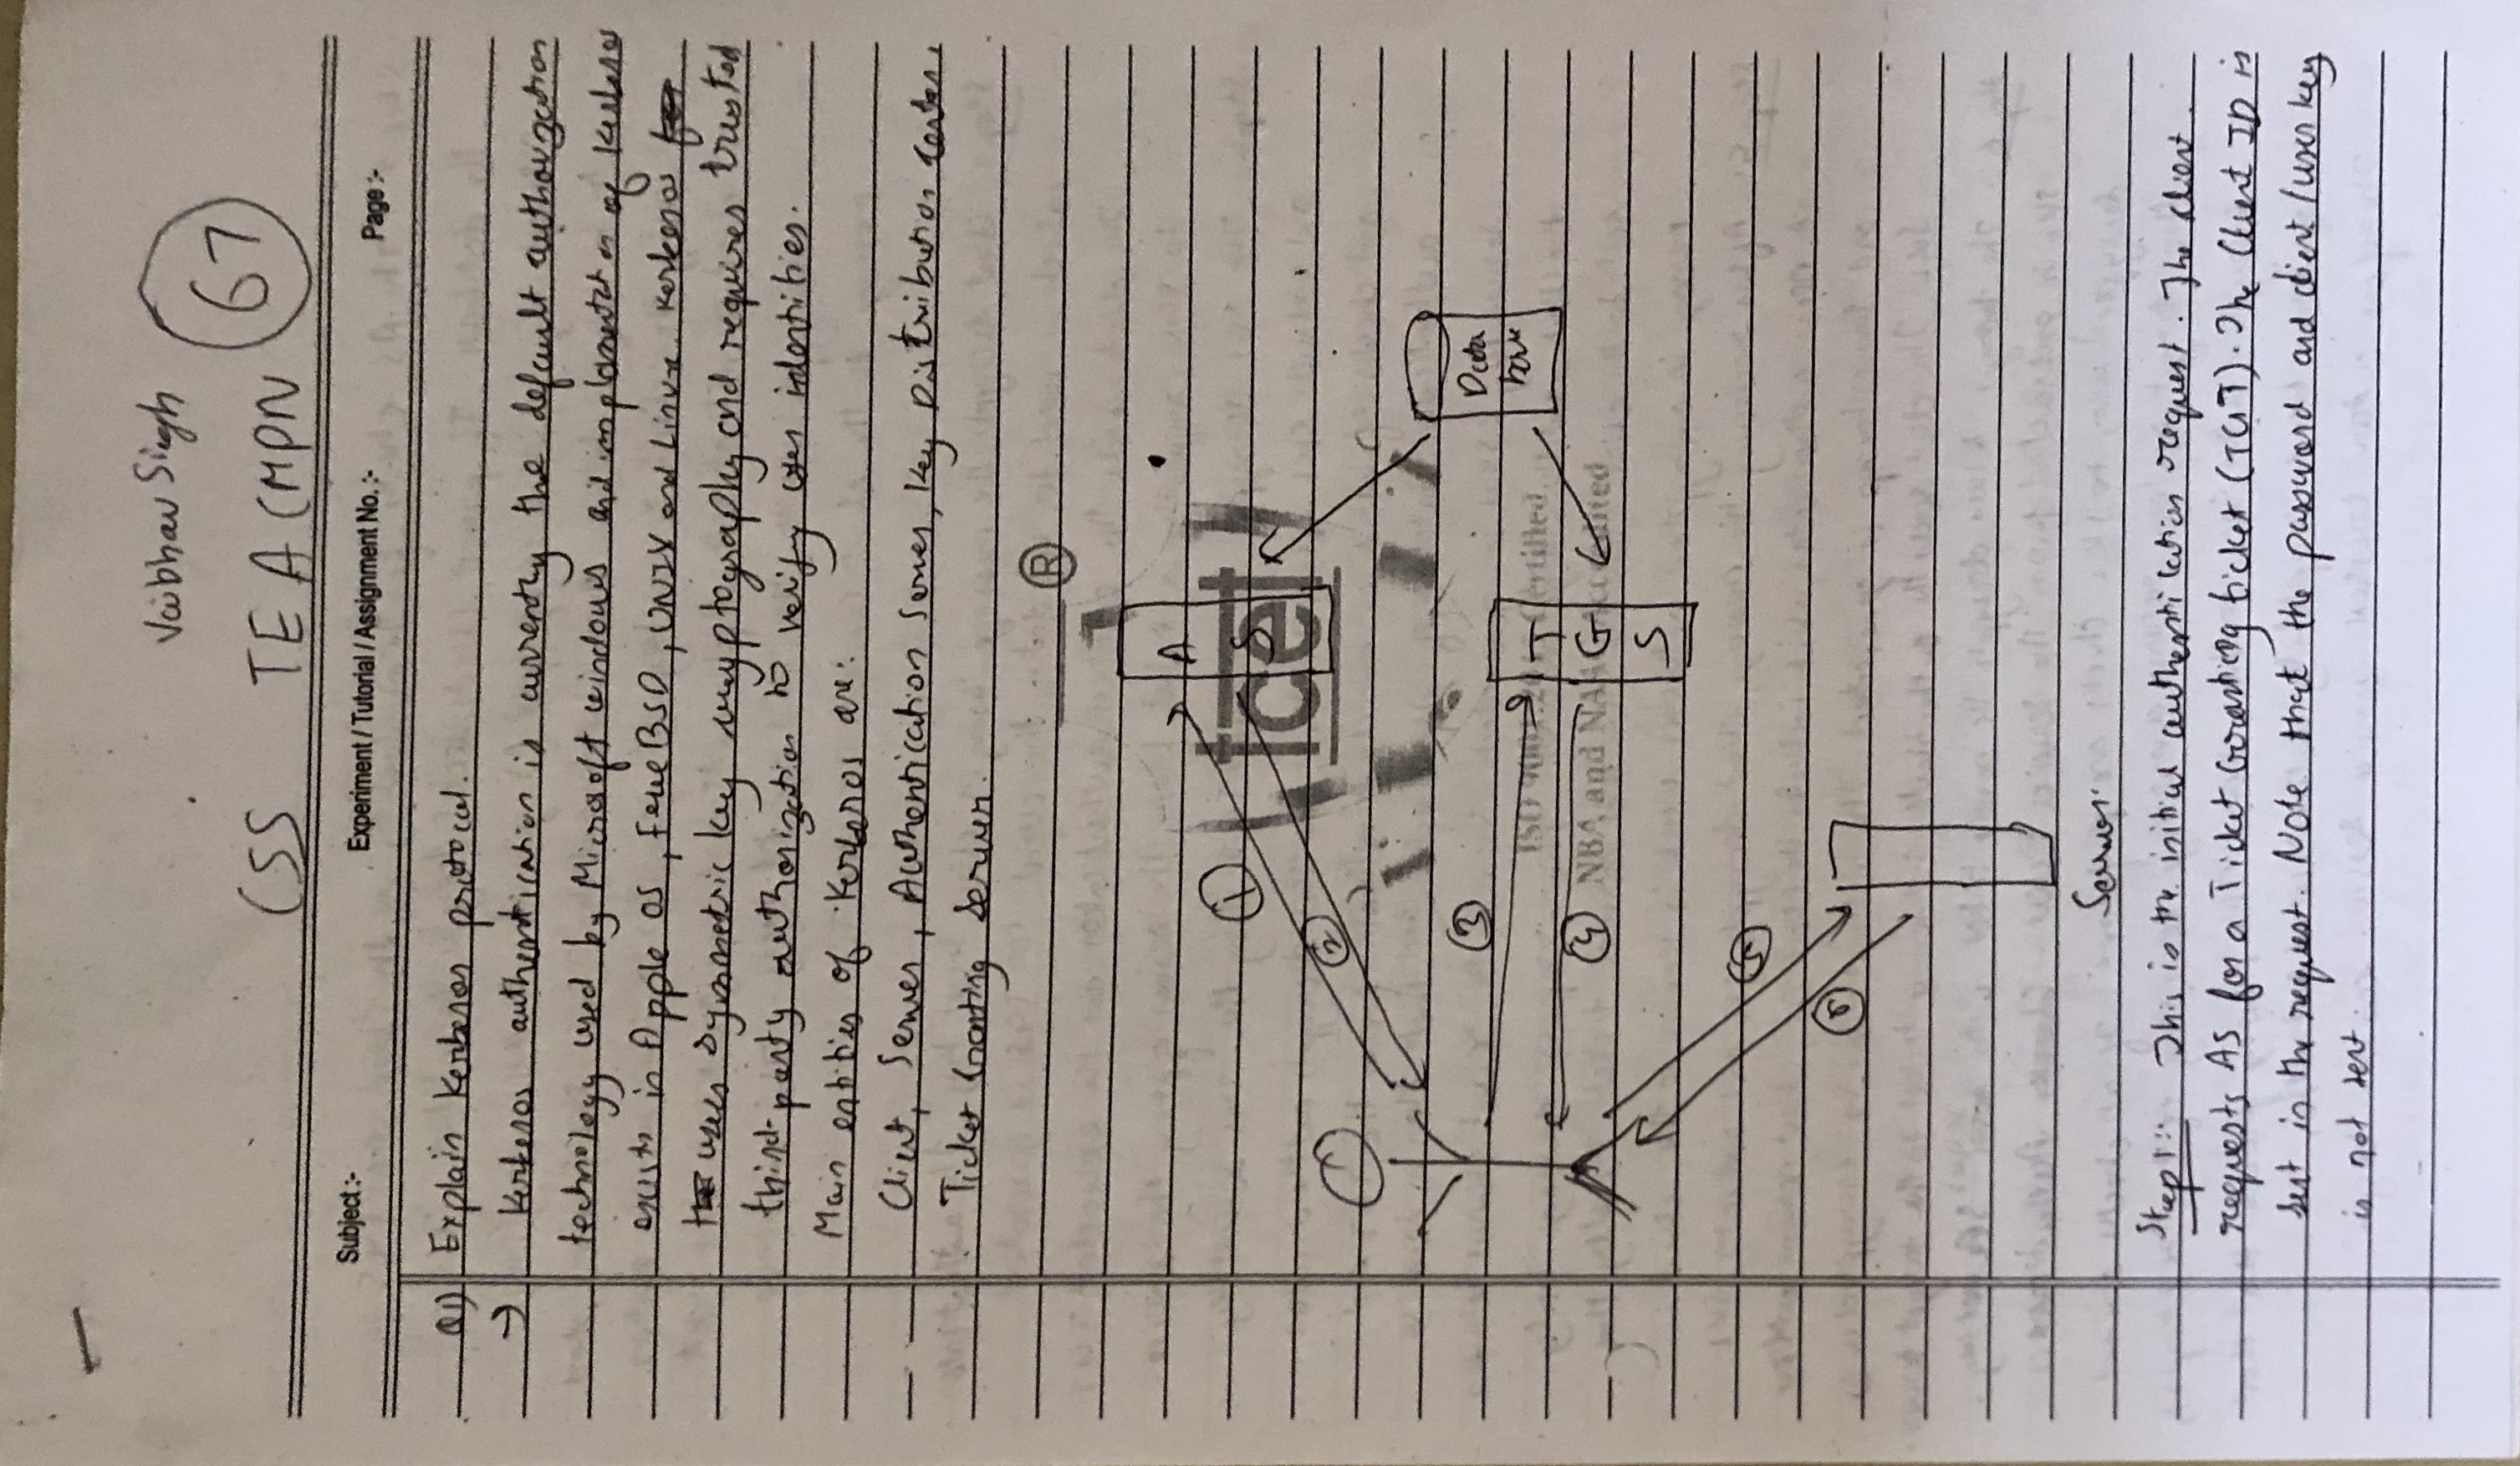 Vaibhav Singh
CSS TE A CMPN 67
Subject :- Experiment / Tutorial / Assignment No. :- Page :-
Q1) Explain kerberos protocol.
→ kerberos authentication is currently the default authorization
technology used by Microsoft windows and of
in Apple OS, free BSD, UNIX and Linux. kerberos
uses symmetric key cryptography and requires trusted
third-party authorization to verify user identities.
Main entities of kerberos are:
Client, Server, Authentication Server, Key Distribution Center,
Ticket Granting Server.
R
A
S
icei
①
②
Data
base
③
T
G
S
④
ISO 9001:2 Certified
NBA and NAA
⑤
⑥
Server
Step 1: This is the initial authentication request. The client
requests AS for a Ticket Granting ticket (TGT). The Client ID is
sent in the request. Note that the password and client/user key
is not sent